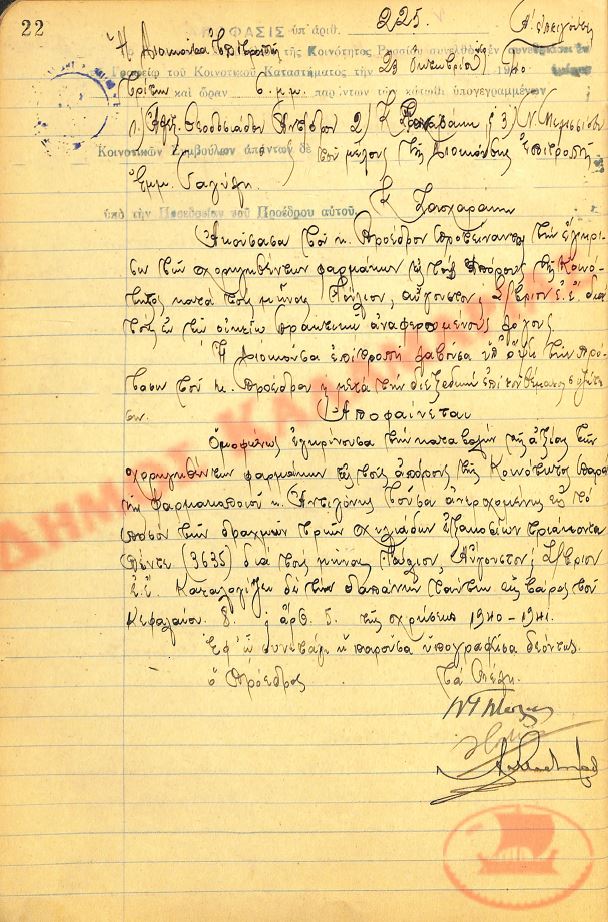 22
ΑΠΟΦΑΣΙΣ ὑπ' ἀριθ. 225.
Ἡ Διοικοῦσα Ἐπιτροπὴ τῆς Κοινότητος Ρυσίου συνελθοῦσα ἐν συνεδριάσει ἐν
Γραφείῳ τοῦ Κοινοτικοῦ Καταστήματος τὴν 23 Ὀκτωβρίου 1940 ἡμέραν
Τρίτην καὶ ὥραν 6 μ.μ. παρόντων τῶν κάτωθι ὑπογεγραμμένων
Κοινοτικῶν Συμβούλων ἀπόντων δὲ τοῦ μέλους τῆς Διοικούσης Ἐπιτροπῆς
Ἐμμ.
ὑπὸ τὴν Προεδρίαν τοῦ Προέδρου αὐτοῦ. Κ Ζαχαράκη
Ἀκούσασα τοῦ κ. Προέδρου προτείναντος τὴν ἔγκρι
σιν τῶν χορηγηθέντων φαρμάκων εἰς τοὺς ἀπόρους τῆς Κοινό
τητος κατὰ τοὺς μῆνας Ἰούλιον, αὔγουστον, 7/βριον ἐ.ἔ. διὰ
τοὺς ἐν τῷ οἰκείῳ πρακτικῷ ἀναφερομένους λόγους.
Ἡ Διοικοῦσα ἐπιτροπὴ λαβοῦσα ὑπ' ὄψιν τὴν πρό
τασιν τοῦ κ. Προέδρου καὶ μετὰ τὴν διεξοδικὴν ἐπὶ τοῦ θέματος συζήτη
σιν.
Ἀποφαίνεται
Ὁμοφώνως ἐγκρίνουσα τὴν καταβολὴν τῆς ἀξίας τῶν
χορηγηθέντων φαρμάκων εἰς τοὺς ἀπόρους τῆς Κοινότητος παρὰ
τῆς Φαρμακοποιοῦ κ. Ἀντιγόνης ἀνερχομένης εἰς τὸ
ποσὸν τῶν δραχμῶν τριῶν χιλιάδων ἑξακοσίων τριάκοντα
πέντε (3635) διὰ τοὺς μῆνας Ἰούλιον, Αὔγουστον, 7/βριον
ἐ.ἔ. Καταλογίζει δὲ τὴν δαπάνην ταύτην εἰς βάρος τοῦ
Κεφαλαίου ἀρθ. 5. τῆς χρήσεως 1940-1941.
Ἐφ' ᾧ συνετάγη ἡ παροῦσα ὑπογραφεῖσα δεόντως.
ὁ Πρόεδρος Τὰ Μέλη.
ΔΗΜΟΣ ΚΑΛΑΜΑΡΙΑΣ